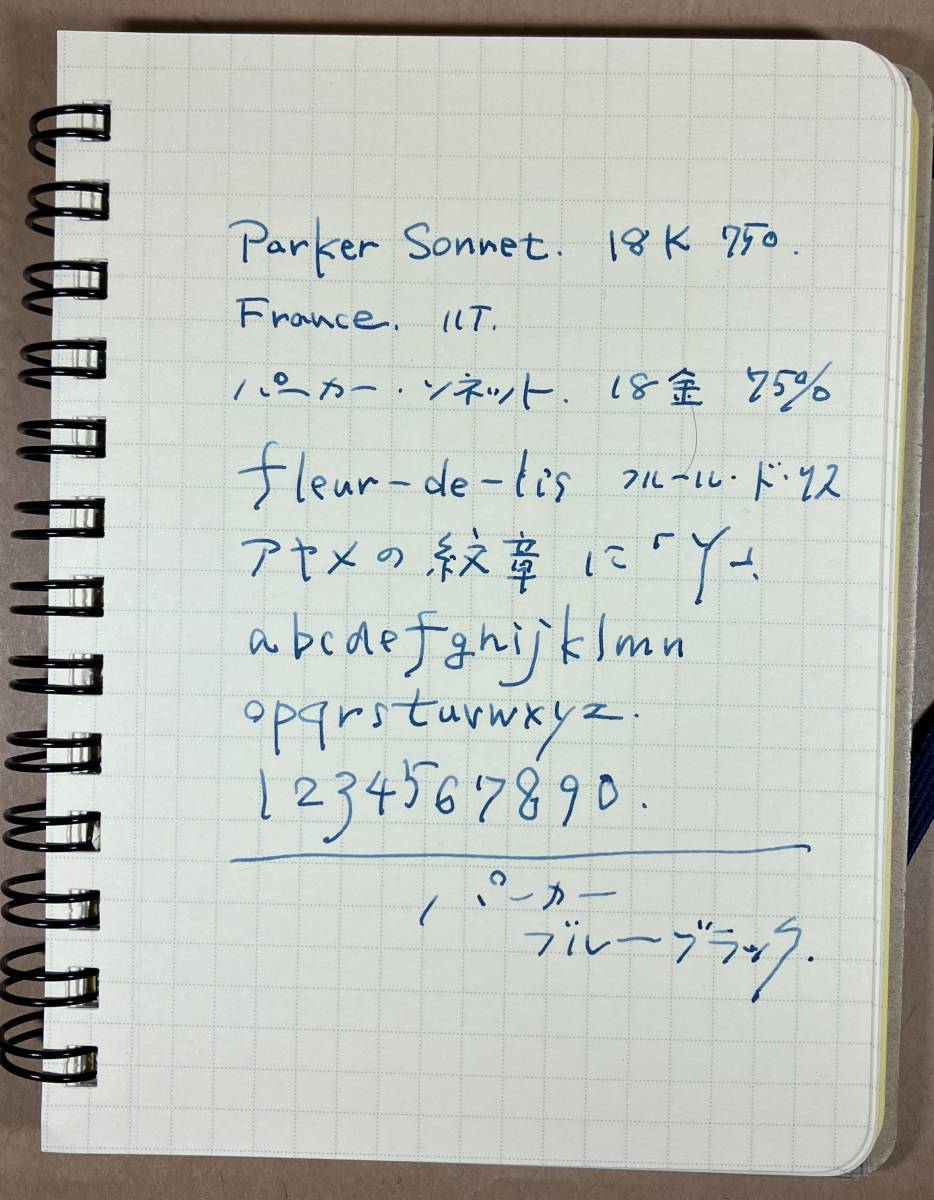 Parker Sonnet. 18K 750.
France. IIT.
パーカー・ソネット. 18金 75%
fleur-de-lis フルール・ド・リス
アヤメの紋章に「Y」
abcdefghijklmn
opqrstuvwxyz.
1234567890.
パーカー
ブルーブラック.